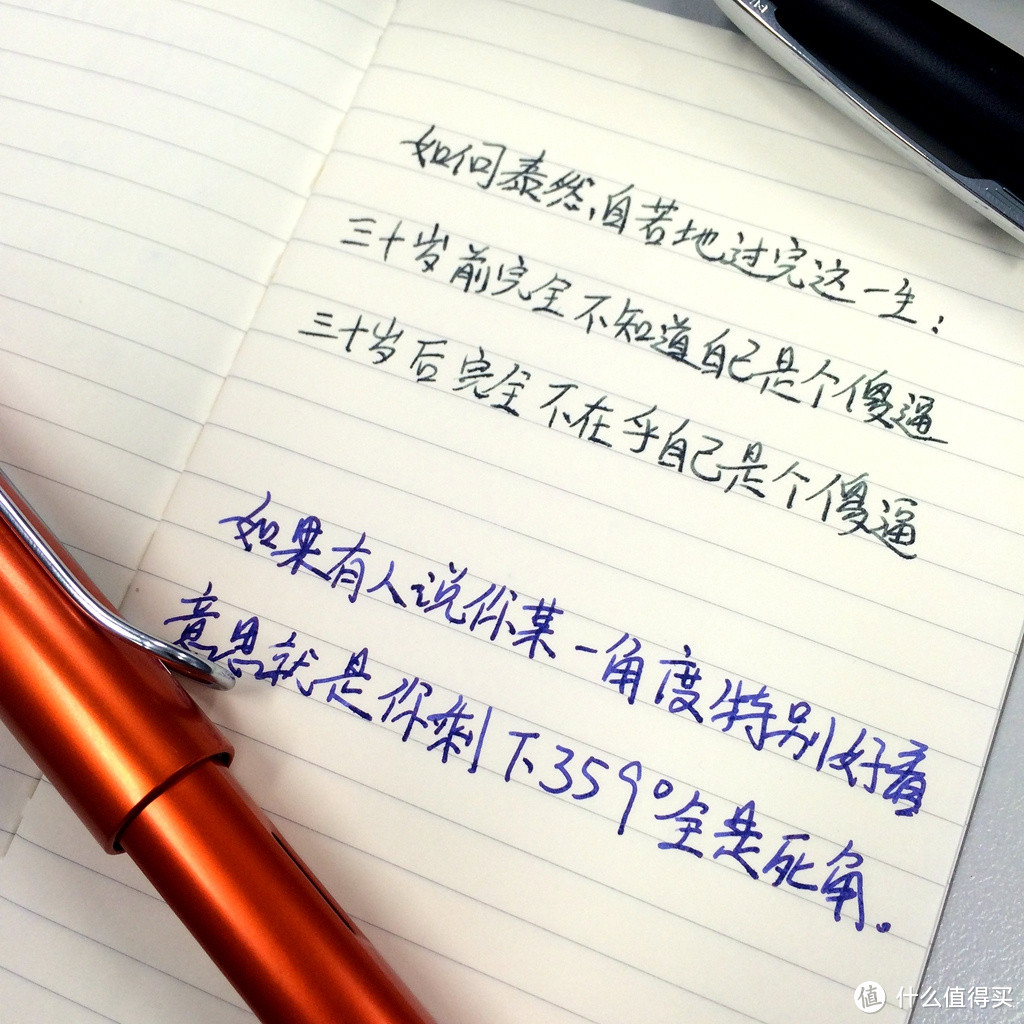 如何泰然自若地过完这一生：
三十岁前完全不知道自己是个傻逼
三十岁后完全不在乎自己是个傻逼
如果有人说你某一角度特别好看
意思就是你剩下359°全是死角。
值 什么值得买